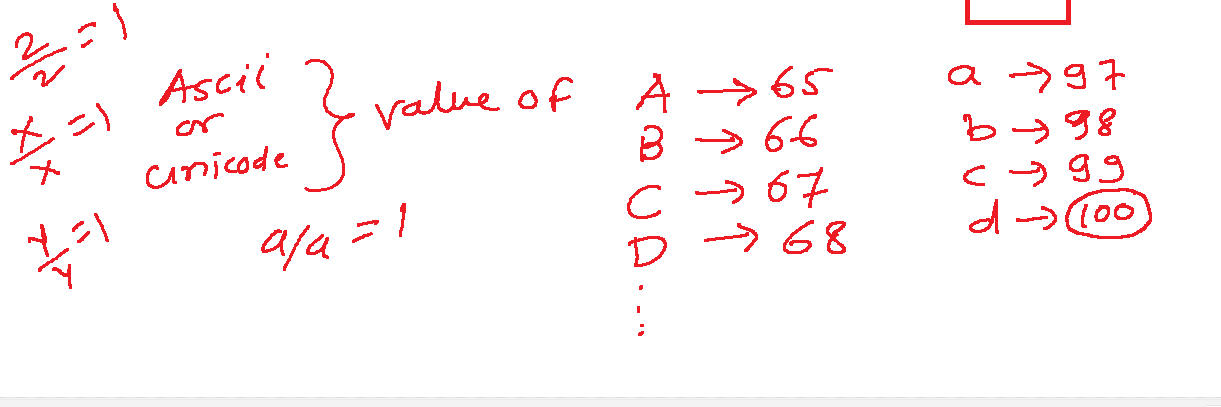 2/2 = 1
x/x = 1
y/y = 1
Ascii
or
unicode
} value of
a/a = 1
A → 65
B → 66
C → 67
D → 68
⋮
a → 97
b → 98
c → 99
d → 100